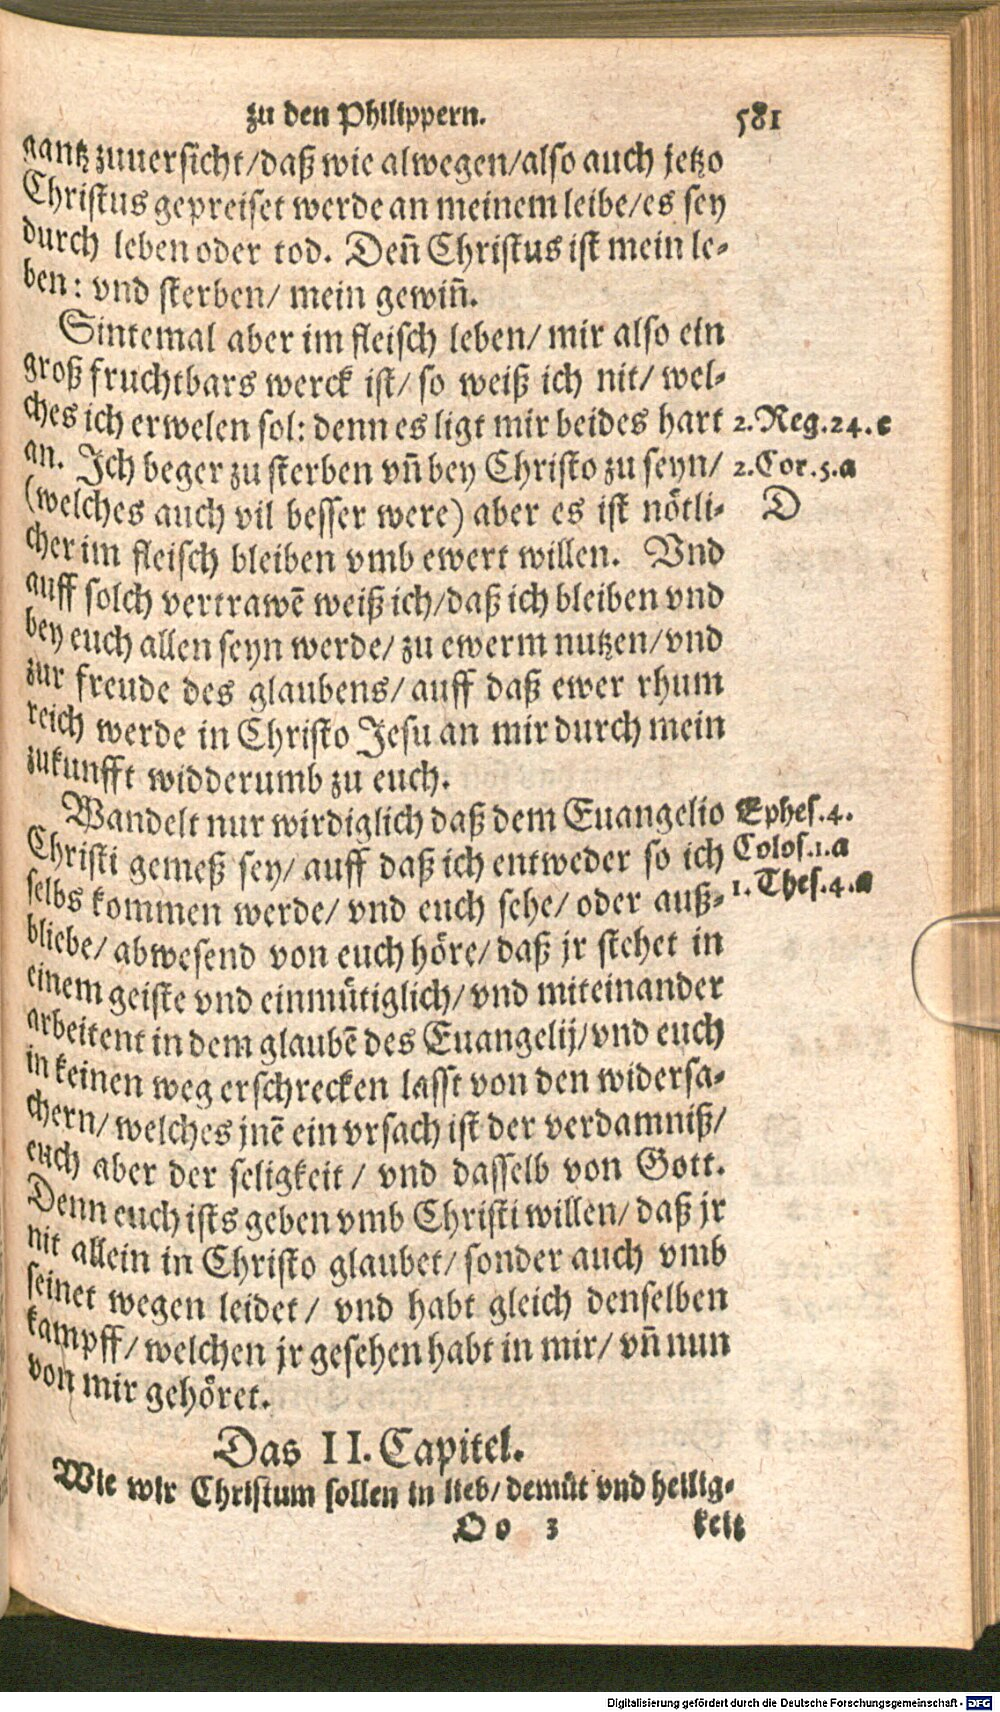 zu den Philippern. 581
gantz zuuersicht/daß wie alwegen/also auch jetzo
Christus gepreiset werde an meinem leibe/es sey
durch leben oder tod. Deñ Christus ist mein le-
ben: vnd sterben/ mein gewiñ.
Sintemal aber im fleisch leben/ mir also ein
groß fruchtbars werck ist/ so weiß ich nit/ wel-
ches ich erwelen sol: denn es ligt mir beides hart 2.Reg.24.c
an. Ich beger zu sterben vñ bey Christo zu seyn/ 2.Cor.5.a
(welches auch vil besser were) aber es ist nötli- D
cher im fleisch bleiben vmb ewert willen. Vnd
auff solch vertrawē weiß ich/daß ich bleiben vnd
bey euch allen seyn werde/ zu ewerm nutzen/vnd
zur freude des glaubens/ auff daß ewer rhum
reich werde in Christo Jesu an mir durch mein
zukunfft widderumb zu euch.
Wandelt nur wirdiglich daß dem Euangelio Ephes.4.
Christi gemeß sey/ auff daß ich entweder so ich Colos.1.a
selbs kommen werde/ vnd euch sehe/ oder auß- 1.Thes.4.a
bliebe/ abwesend von euch höre/ daß jr stehet in
einem geiste vnd einmütiglich/ vnd miteinander
arbeitent in dem glaubē des Euangelij/vnd euch
in keinen weg erschrecken lasst von den widersa-
chern/ welches jnē ein vrsach ist der verdamniß/
euch aber der seligkeit / vnd dasselb von Gott.
Denn euch ists geben vmb Christi willen/ daß jr
nit allein in Christo glaubet/ sonder auch vmb
seinet wegen leidet / vnd habt gleich denselben
kampff/ welchen jr gesehen habt in mir/ vñ nun
von mir gehöret.
Das II. Capitel.
Wie wir Christum sollen in lieb/ demüt vnd heilig-
Oo 3 keit
Digitalisierung gefördert durch die Deutsche Forschungsgemeinschaft - DFG